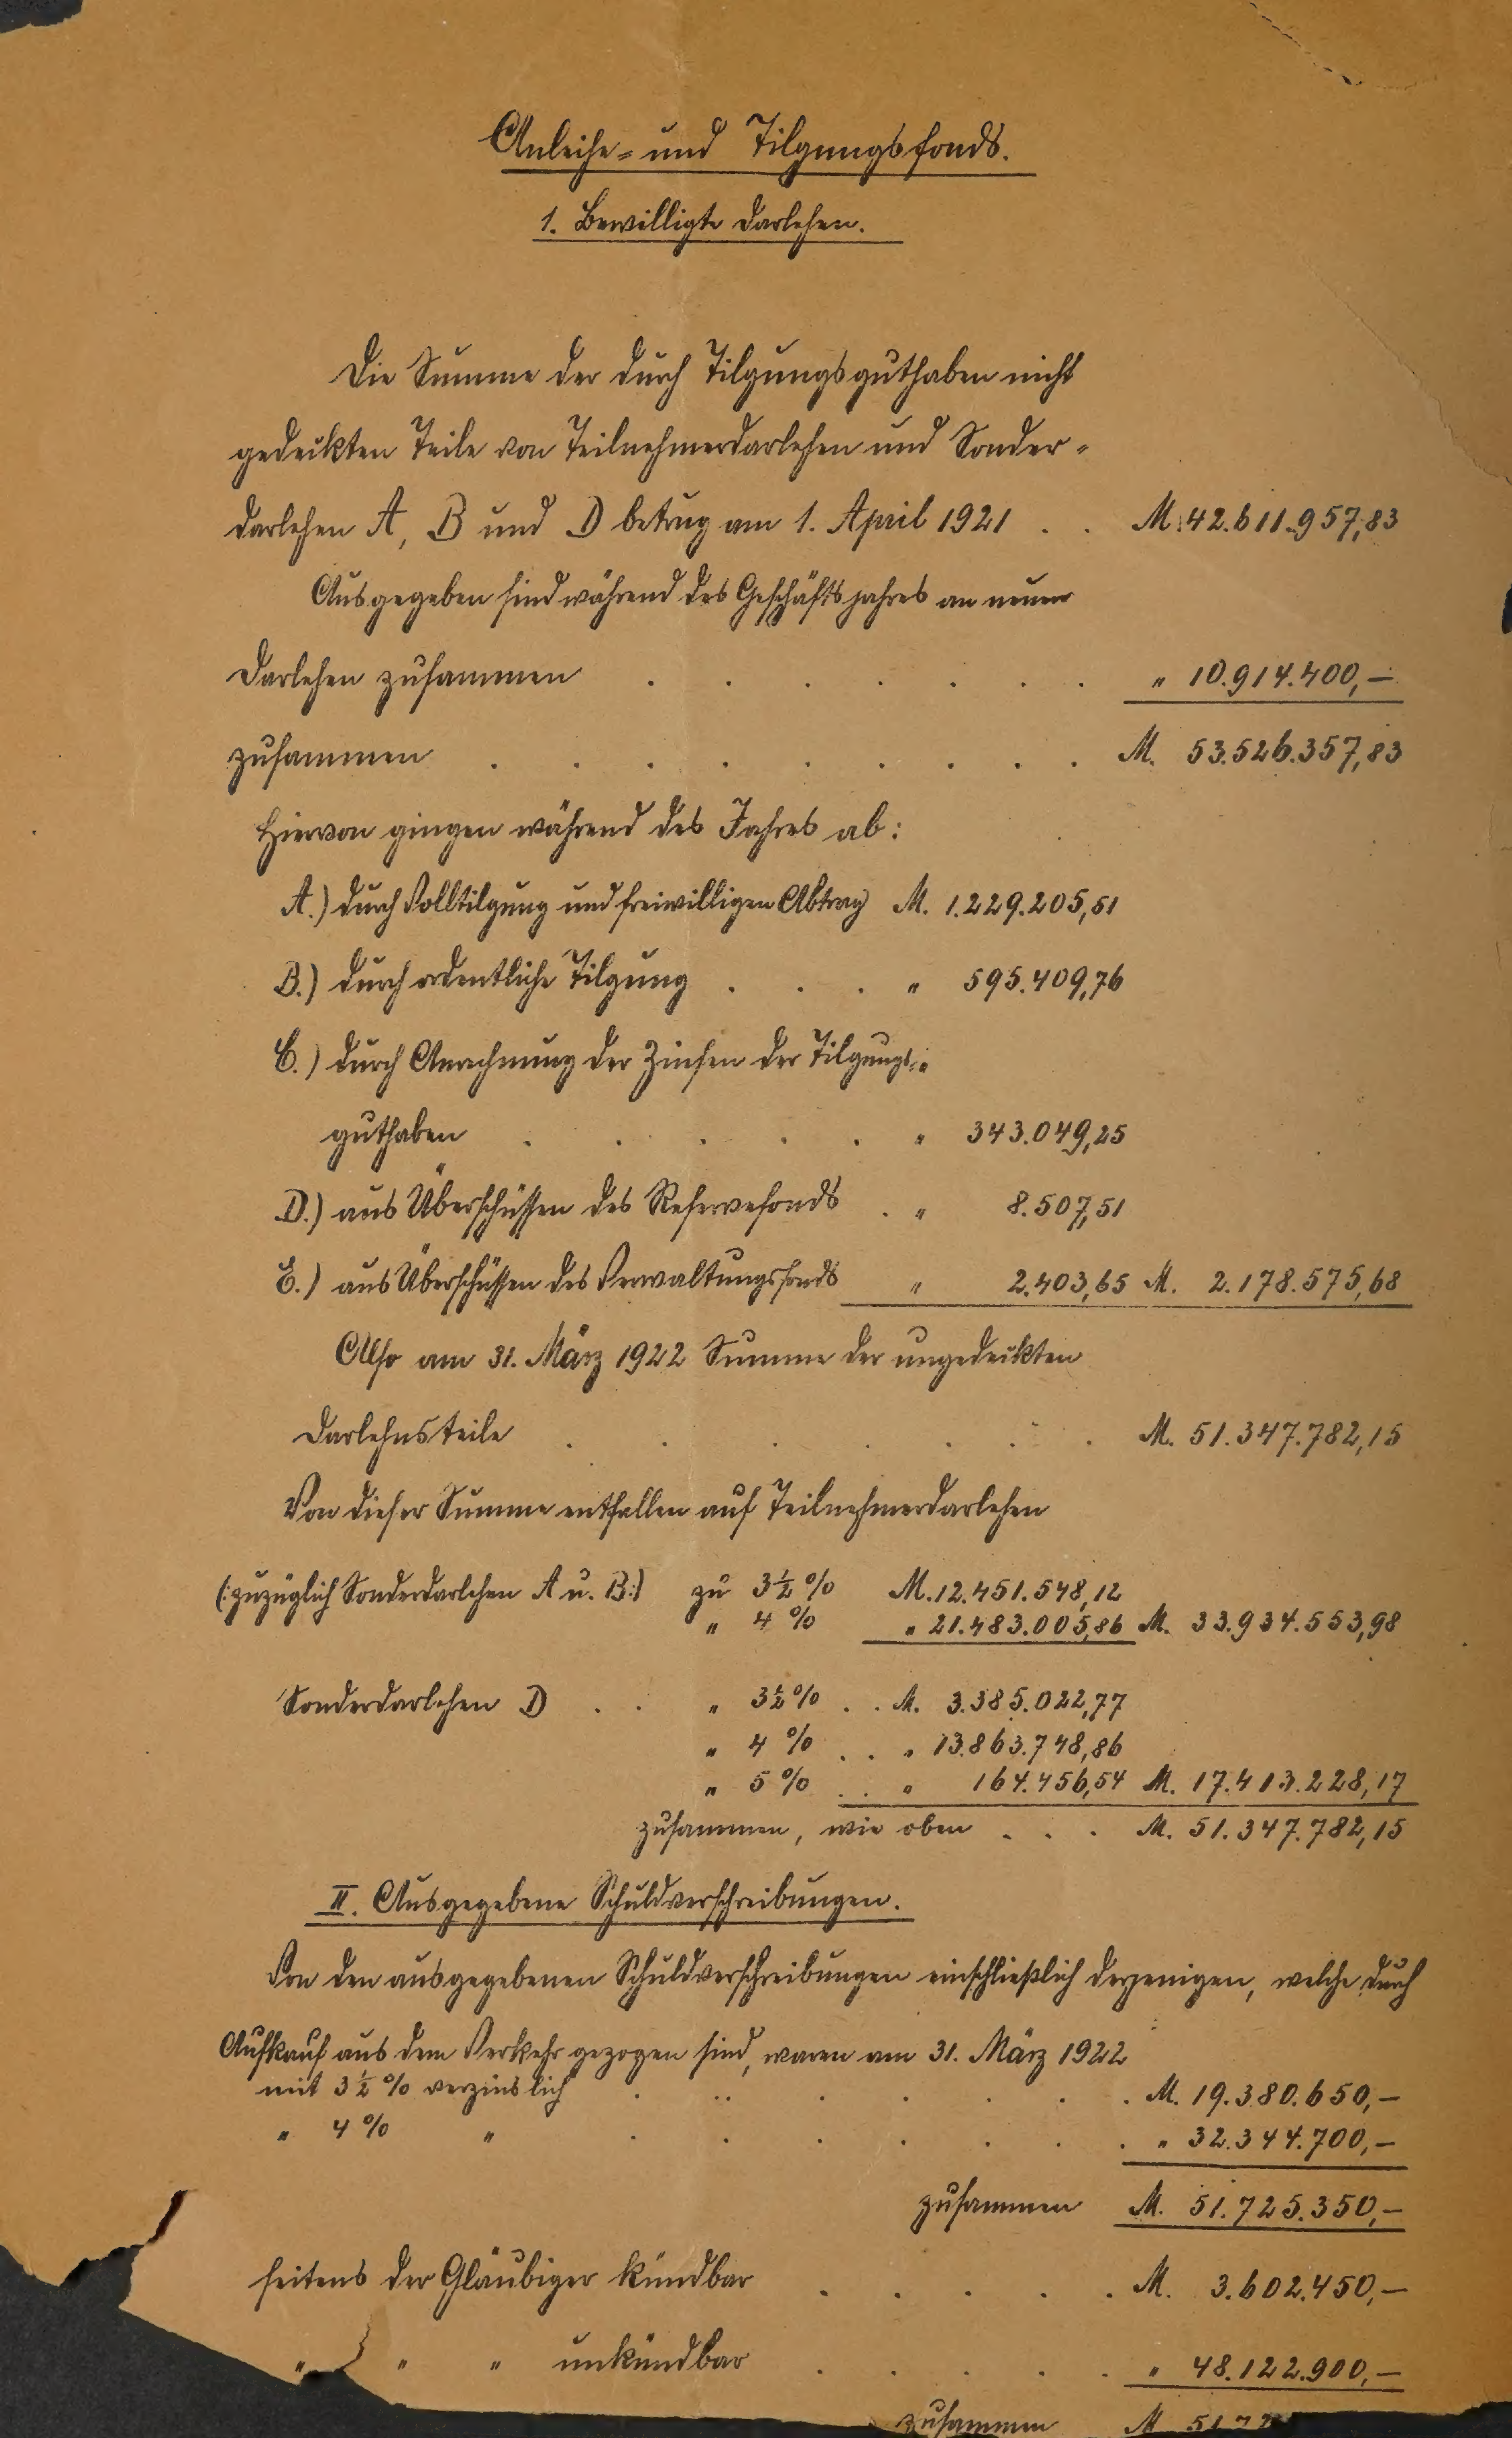 Anleihe- und Tilgungsfonds.
1. Bewilligte Darlehen.
Die Summe der durch Tilgungsguthaben nicht
gedeckten Teile von Teilnehmerdarlehen und Sonder-
darlehen A, B und D betrug am 1. April 1921 . . M. 42.611.957,83
Ausgegeben sind während des Geschäftsjahres an neuen
Darlehen zusammen . . . . . . . " 10.914.400,-
zusammen . . . . . . . . . M. 53.526.357,83
Hiervon gingen während des Jahres ab:
A.) durch Volltilgung und freiwilligen Abtrag M. 1.229.205,51
B.) durch ordentliche Tilgung . . . " 595.409,76
C.) durch Anrechnung der Zinsen der Tilgungs-
guthaben . . . . . " 343.049,25
D.) aus Überschüssen des Reservefonds . " 8.507,51
E.) aus Überschüssen des Verwaltungsfonds " 2.403,65 M. 2.178.575,68
Also am 31. März 1922 Summe der ungedeckten
Darlehnsteile . . . . . . . M. 51.347.782,15
Von dieser Summe entfallen auf Teilnehmerdarlehen
(:zuzüglich Sonderdarlehen A u. B:) zu 3½ % M. 12.451.548,12
" 4 % " 21.483.005,86 M. 33.934.553,98
Sonderdarlehen D . . " 3½ % . . M. 3.385.022,77
" 4 % . . " 13.863.748,86
" 5 % . . " 164.456,54 M. 17.413.228,17
zusammen, wie oben . . . M. 51.347.782,15
II. Ausgegebene Schuldverschreibungen.
Von den ausgegebenen Schuldverschreibungen einschließlich derjenigen, welche durch
Aufkauf aus dem Verkehr gezogen sind, waren am 31. März 1922
mit 3½ % verzinslich . . . . . . M. 19.380.650,-
" 4 % " . . . . . . . " 32.344.700,-
zusammen M. 51.725.350,-
seitens der Gläubiger kündbar . . . . . M. 3.602.450,-
" " " unkündbar . . . . . " 48.122.900,-
zusammen M. 51.72